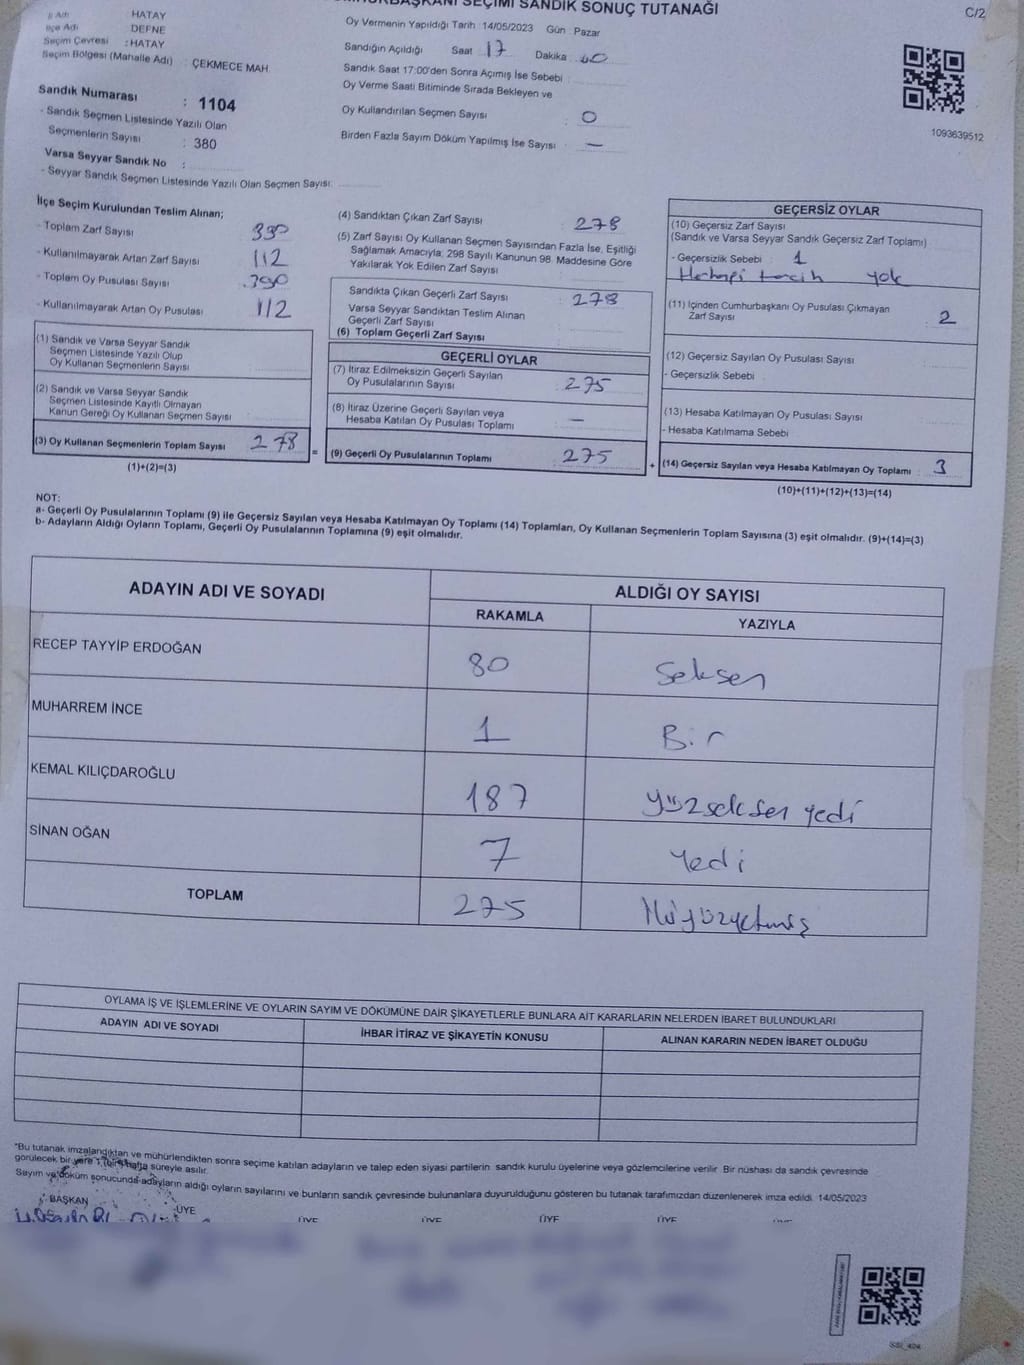 SEÇİMİ SANDIK SONUÇ TUTANAĞI
C/2
İl Adı HATAY
İlçe Adı DEFNE
Seçim Çevresi : HATAY
Seçim Bölgesi (Mahalle Adı) : ÇEKMECE MAH.
Sandık Numarası : 1104
- Sandık Seçmen Listesinde Yazılı Olan
Seçmenlerin Sayısı : 380
Varsa Seyyar Sandık No :
- Seyyar Sandık Seçmen Listesinde Yazılı Olan Seçmen Sayısı:
Oy Vermenin Yapıldığı Tarih : 14/05/2023 Gün : Pazar
Sandığın Açıldığı Saat 17 Dakika
Sandık Saat 17:00'den Sonra Açımış İse Sebebi
Oy Verme Saati Bitiminde Sırada Bekleyen ve
Oy Kullandırılan Seçmen Sayısı : 0
Birden Fazla Sayım Döküm Yapılmış İse Sayısı : —
1093639512
İlçe Seçim Kurulundan Teslim Alınan;
- Toplam Zarf Sayısı 390
- Kullanılmayarak Artan Zarf Sayısı 112
- Toplam Oy Pusulası Sayısı 390
- Kullanılmayarak Artan Oy Pusulası 112
(1) Sandık ve Varsa Seyyar Sandık
Seçmen Listesinde Yazılı Olup
Oy Kullanan Seçmenlerin Sayısı
(2) Sandık ve Varsa Seyyar Sandık
Seçmen Listesinde Kayıtlı Olmayan
Kanun Gereği Oy Kullanan Seçmen Sayısı
(3) Oy Kullanan Seçmenlerin Toplam Sayısı 278
(1)+(2)=(3)
(4) Sandıktan Çıkan Zarf Sayısı : 278
(5) Zarf Sayısı Oy Kullanan Seçmen Sayısından Fazla İse, Eşitliği
Sağlamak Amacıyla; 298 Sayılı Kanunun 98. Maddesine Göre
Yakılarak Yok Edilen Zarf Sayısı
Sandıkta Çıkan Geçerli Zarf Sayısı : 278
Varsa Seyyar Sandıktan Teslim Alınan
Geçerli Zarf Sayısı
(6) Toplam Geçerli Zarf Sayısı
GEÇERLİ OYLAR
(7) İtiraz Edilmeksizin Geçerli Sayılan
Oy Pusulalarının Sayısı : 275
(8) İtiraz Üzerine Geçerli Sayılan veya
Hesaba Katılan Oy Pusulası Toplamı : —
= (9) Geçerli Oy Pusulalarının Toplamı 275
GEÇERSİZ OYLAR
(10) Geçersiz Zarf Sayısı
(Sandık ve Varsa Seyyar Sandık Geçersiz Zarf Toplamı)
- Geçersizlik Sebebi : 1
tercih yok
(11) İçinden Cumhurbaşkanı Oy Pusulası Çıkmayan
Zarf Sayısı : 2
(12) Geçersiz Sayılan Oy Pusulası Sayısı
- Geçersizlik Sebebi
(13) Hesaba Katılmayan Oy Pusulası Sayısı
- Hesaba Katılmama Sebebi
+ (14) Geçersiz Sayılan veya Hesaba Katılmayan Oy Toplamı : 3
(10)+(11)+(12)+(13)=(14)
NOT:
a- Geçerli Oy Pusulalarının Toplamı (9) ile Geçersiz Sayılan veya Hesaba Katılmayan Oy Toplamı (14) Toplamları, Oy Kullanan Seçmenlerin Toplam Sayısına (3) eşit olmalıdır. (9)+(14)=(3)
b- Adayların Aldığı Oyların Toplamı, Geçerli Oy Pusulalarının Toplamına (9) eşit olmalıdır.
ADAYIN ADI VE SOYADI
ALDIĞI OY SAYISI
RAKAMLA YAZIYLA
RECEP TAYYİP ERDOĞAN 80 Seksen
MUHARREM İNCE 1 Bir
KEMAL KILIÇDAROĞLU 187 Yüzseksen yedi
SİNAN OĞAN 7 Yedi
TOPLAM 275
OYLAMA İŞ VE İŞLEMLERİNE VE OYLARIN SAYIM VE DÖKÜMÜNE DAİR ŞİKAYETLERLE BUNLARA AİT KARARLARIN NELERDEN İBARET BULUNDUKLARI
ADAYIN ADI VE SOYADI İHBAR İTİRAZ VE ŞİKAYETİN KONUSU ALINAN KARARIN NEDEN İBARET OLDUĞU
*Bu tutanak imzalandıktan ve mühürlendikten sonra seçime katılan adayların ve talep eden siyasi partilerin sandık kurulu üyelerine veya gözlemcilerine verilir. Bir nüshası da sandık çevresinde
görülecek bir yere 1 (bir) hafta süreyle asılır.
Sayım ve döküm sonucunda adayların aldığı oyların sayılarını ve bunların sandık çevresinde bulunanlara duyurulduğunu gösteren bu tutanak tarafımızdan düzenlenerek imza edildi. 14/05/2023
BAŞKAN ÜYE ÜYE ÜYE ÜYE ÜYE